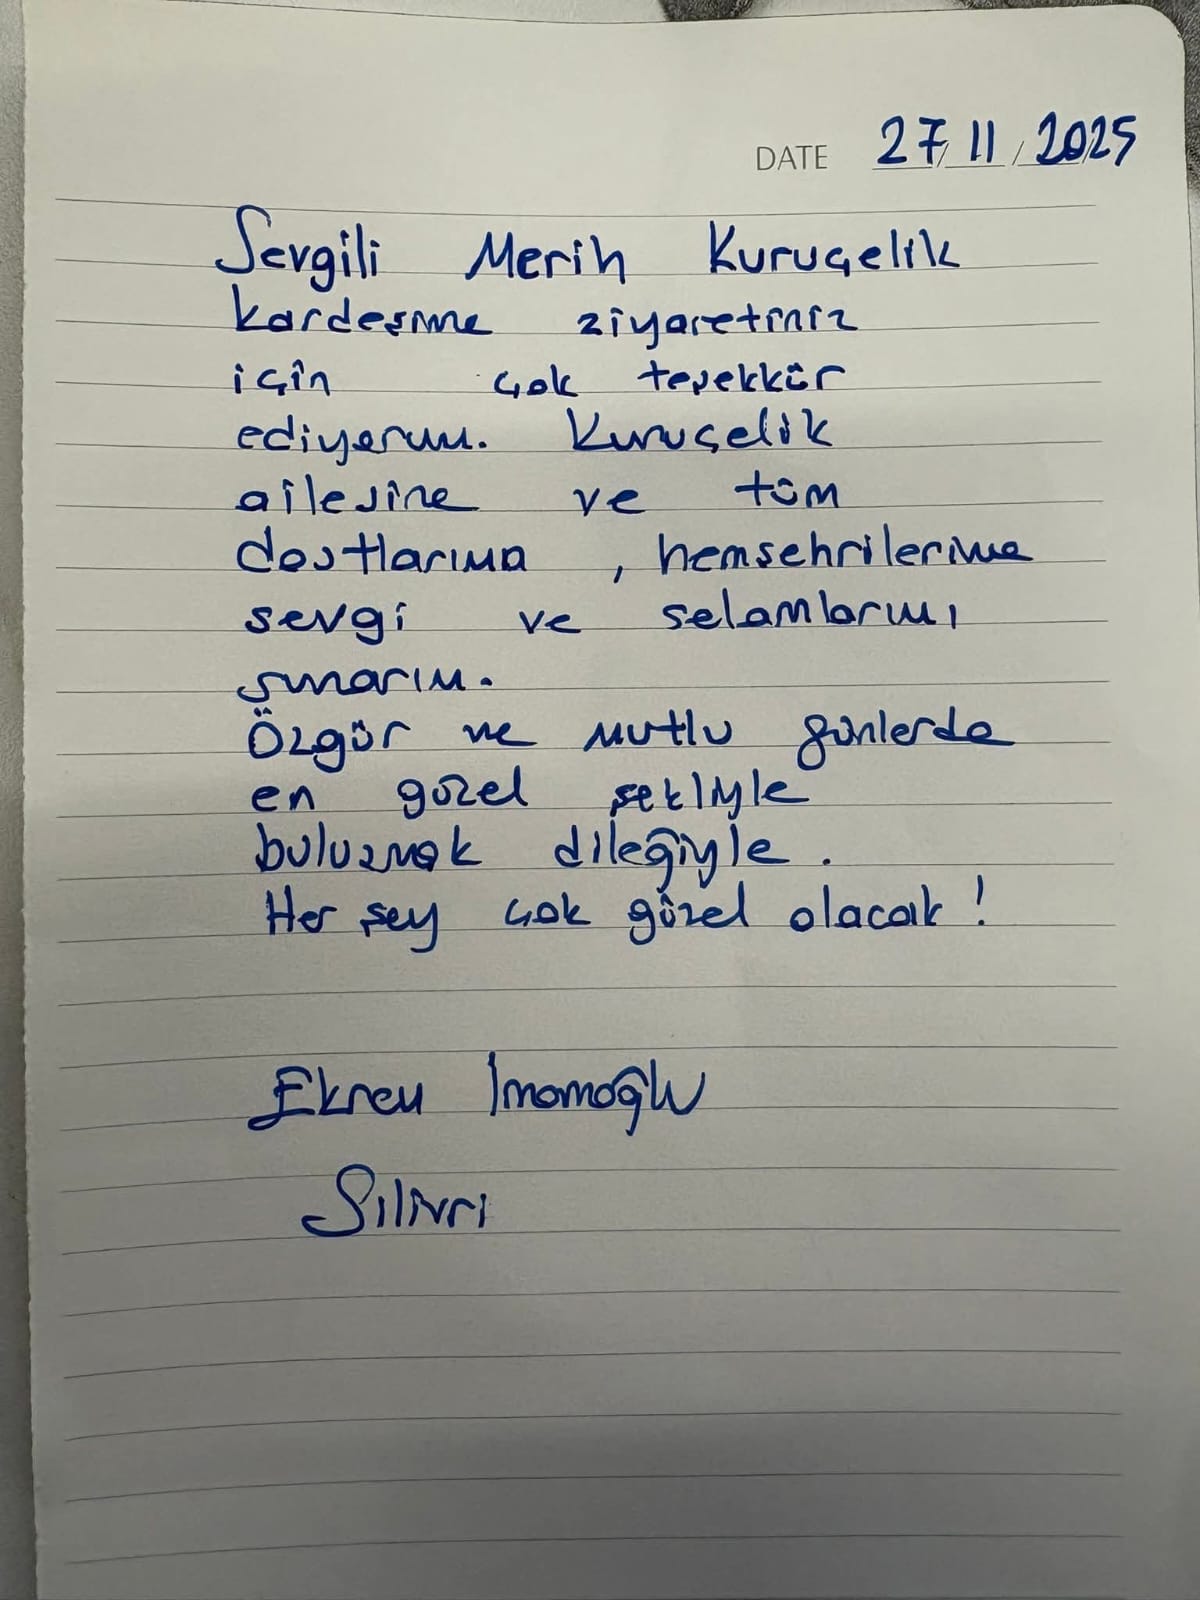 DATE 27/11/2025
Sevgili Merih Kuruçelik
kardeşime ziyaretiniz
için çok teşekkür
ediyorum. Kuruçelik
ailesine ve tüm
dostlarıma, hemşehrilerime
sevgi ve selamlarımı
sunarım.
Özgür ve mutlu günlerde
en güzel şekliyle
buluşmak dileğiyle.
Her şey çok güzel olacak!
Ekrem İmamoğlu
Silivri